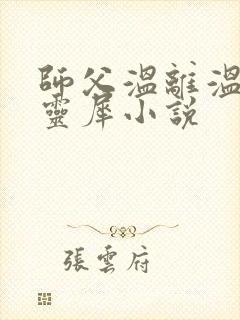 師父溫離溫
靈犀小說
張雲府